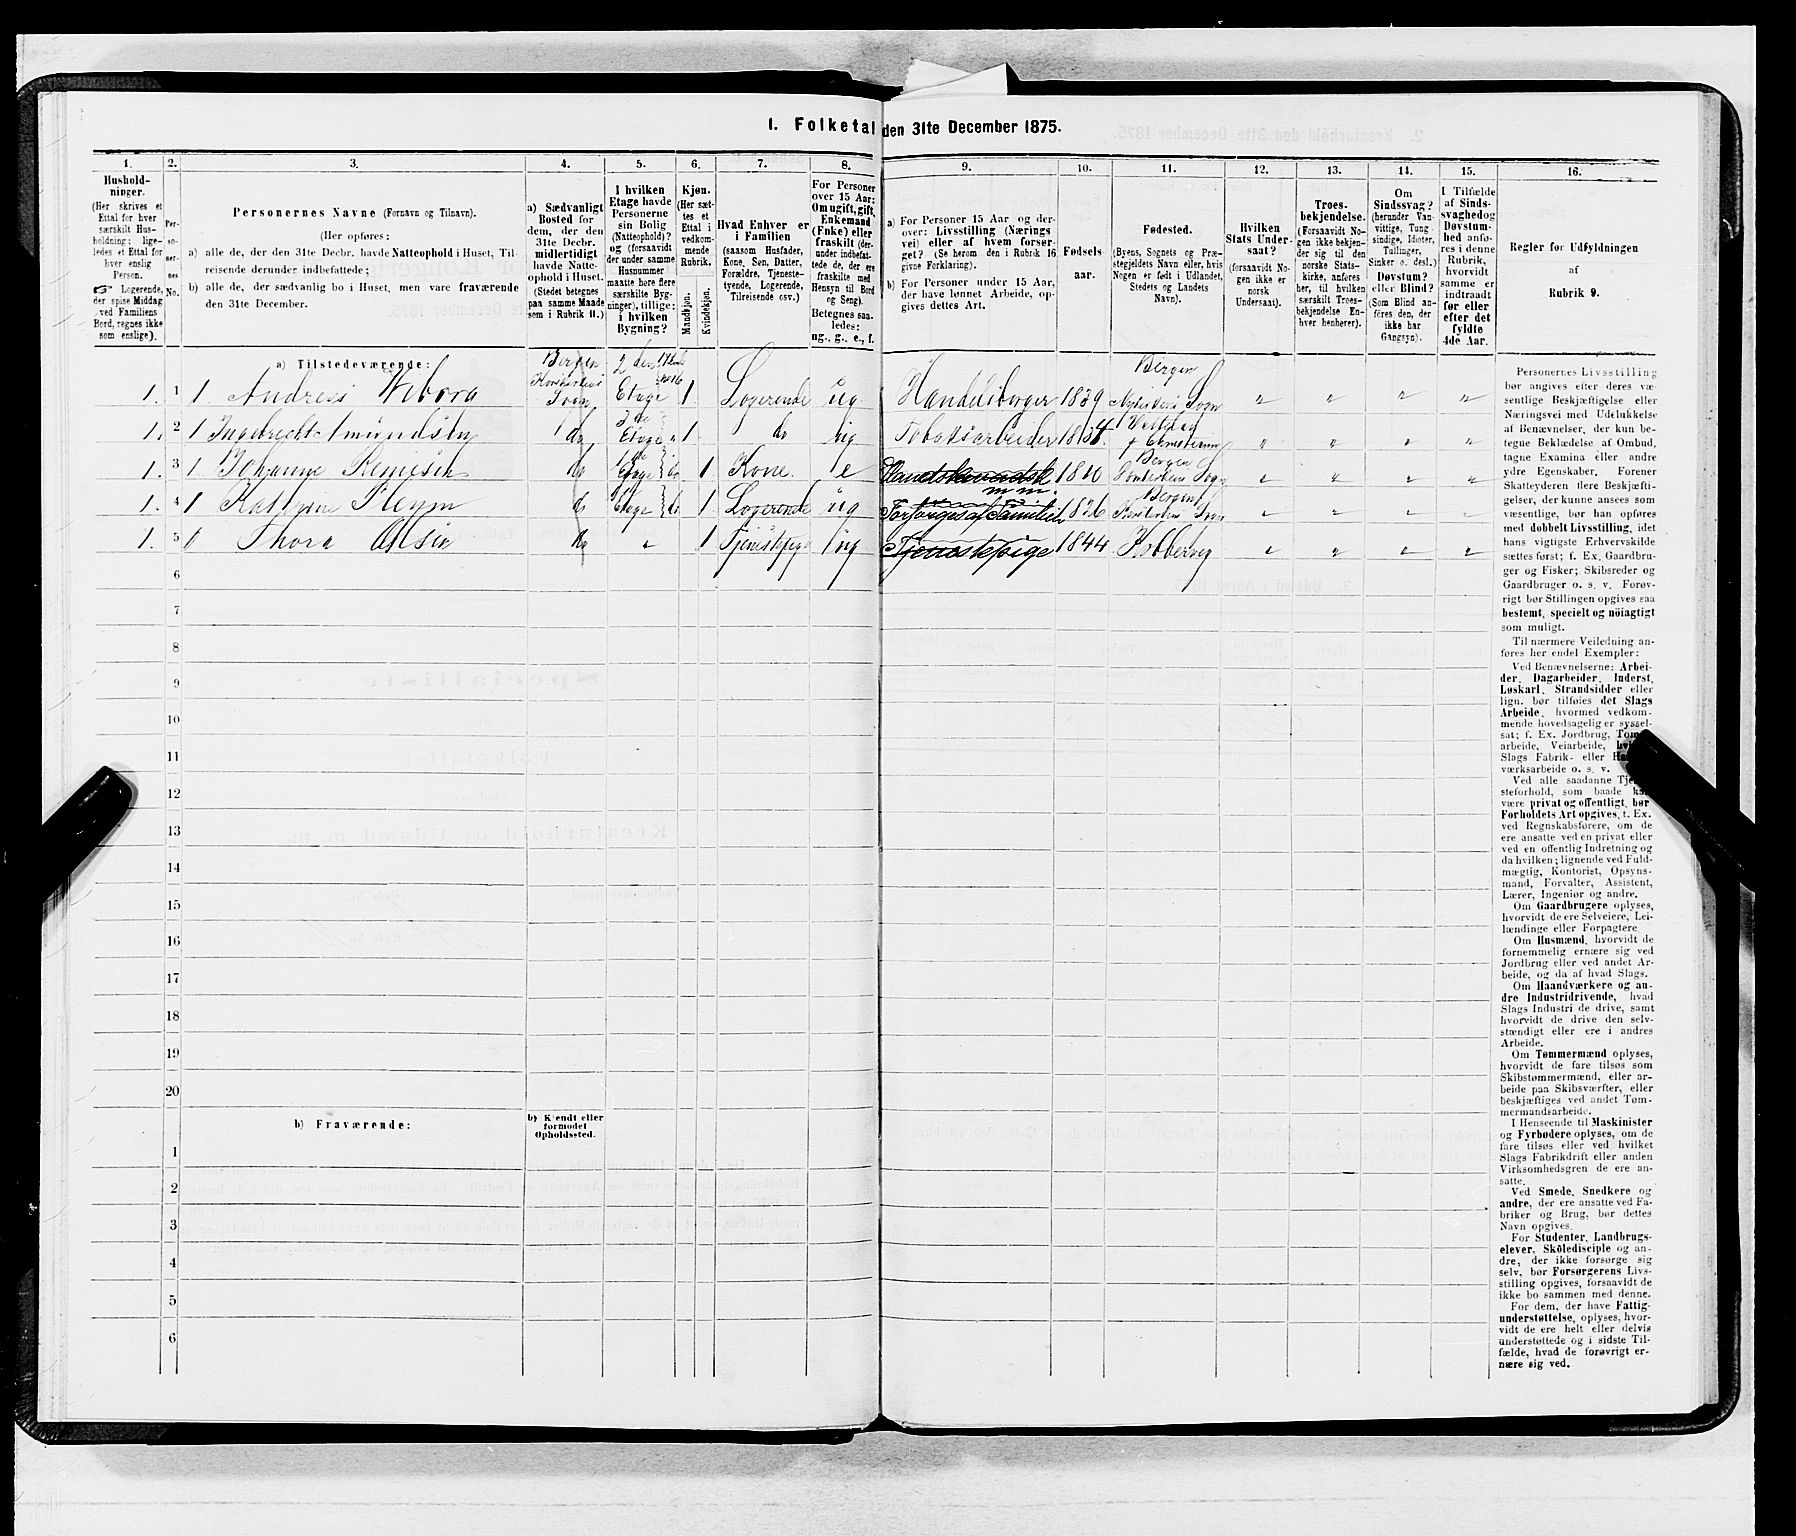 1. Folketal den 31te December 1875.
1. 2. 3. 4. 5. 6. 7. 8. 9. 10. 11. 12. 13. 14. 15. 16.
Hushold-
ninger.
(Her skrives et
Ettal for hver
særskilt Hus-
holdning; lige-
ledes et Ettal for
hver enslig
Person.
☞ Logerende,
der spise Middag
ved Familiens
Bord, regnes ikke
som enslige).
Per-
so-
ner-
nes
No.
Personernes Navne (Fornavn og Tilnavn).
(Her opføres:
a) alle de, der den 31te Decbr. havde Natteophold i Huset, Til-
reisende derunder indbefattede;
b) alle de, der sædvanlig bo i Huset, men vare fraværende
den 31te December.
a) Sædvanligt
Bosted for
dem, der den
31te Decbr.
midlertidigt
havde Natte-
ophold i Huset.
(Stedet betegnes
paa samme Maade
som i Rubrik 11.)
I hvilken
Etage havde
Personerne
sin Bolig
(Natteophold)?
og (forsaavidt
der under samme
Husnummer
maatte høre flere
særskilte Byg-
ninger), tillige:
i hvilken
Bygning?
Kjøn.
(Her sæt-
tes et
Ettal i
vedkom-
mende
Rubrik.
Mandkjøn.
Kvindekjøn.
Hvad Enhver er
i Familien
(saasom Husfader,
Kone, Søn, Datter,
Forældre, Tjeneste-
tyende, Logerende,
Tilreisende osv.)
For Personer
over 15 Aar:
Om ugift, gift,
Enkemand
(Enke) eller
fraskilt (der-
under indbefat-
tede de, der ere
fraskilte med
Hensyn til Bord
og Seng).
Betegnes saa-
ledes:
ug., g., e., f.
a) For Personer 15 Aar og der-
over: Livsstilling (Nærings
vei) eller af hvem forsør-
get? (Se herom den i Rubrik 16
givne Forklaring).
b) For Personer under 15 Aar,
der have lønnet Arbeide, op-
gives dettes Art.
Fødsels-
aar.
Fødested.
(Byens, Sognets og Præ-
stegjeldets Navn eller, hvis
Nogen er født i Udlandet,
Stedets og Landets
Navn).
Hvilken
Stats Under-
saat?
(forsaavidt No-
gen ikke er
norsk
Undersaat).
Troes-
bekjendelse.
(Forsaavidt No-
gen ikke bekjen-
der sig til den
norske Stats-
kirke, anføres
her, til hvilken
særskilt Troes-
bekjendelse En-
hver henhører).
Om
Sindssvag?
(herunder Van-
vittige, Tung-
sindige, Idioter,
Tullinger,
Sinker o. desl.)
Døvstum?
eller Blind?
(Som Blind an-
føres den, der
ikke har
Gangsyn).
I Tilfælde
af Sinds-
svaghedog
Døvstum-
hed anfø-
res i denne
Rubrik,
hvorvidt
samme er
indtraadt
før eller
efter det
fyldte
4de Aar.
Regler for Udfyldningen
af
Rubrik 9.
a) Tilstedeværende:
1. 1 1 Andreas Wiborg Bergen Korskirkens Sogn 2den Etage 1 Logerende ug Handelsborger 1839 Bergen Nykirkens Sogn " " " "
1. 2 1 Ingebrecht Amundsen do Etage 1 do ug Tobaksarbeider 1834 Christiania " " " "
1. 3 1 Johanne do Etage do 1 Kone e m.m. 1810 Bergen Sogn " " " "
1. 4 1 do Etage do 1 Logerende ug Forsørges af Familien 1826 Bergen Korskirkens Sogn " " " "
1. 5 Thora Olsen do " 1 Tjenestepige ug Tjenestepige 1844 " " " "
6
7
8
9
10
11
12
13
14
15
16
17
18
19
20
b) Fraværende:
b) Kjendt eller
formodet
Opholdssted.
1
2
3
4
5
6
Personernes Livsstilling
bør angives efter deres væ-
sentlige Beskjæftigelse eller
Næringsvei med Udelukkelse
af Benævnelser, der kun be-
tegne Beklædelse af Ombud,
tagne Examina eller andre
ydre Egenskaber. Forener
Skatteyderen flere Beskjæfti-
gelser, der kunne ansees som
væsentlige, bør han opføres
med dobbelt Livsstilling, idet
hans vigtigste Erhvervskilde
sættes først; f. Ex. Gaardbru-
ger og Fisker; Skibsreder og
Gaardbruger o. s. v. Forøv-
rigt bør Stillingen opgives saa
bestemt, specielt og nöiagtigt
som muligt.
Til nærmere Veiledning an-
føres her endel Exempler:
Ved Benævnelserne: Arbei-
der, Dagarbeider, Inderst,
Løskarl, Strandsidder eller
lign. bør tilføies det Slags
Arbeide, hvormed vedkom-
mende hovedsagelig er syssel-
sat; f. Ex. Jordbrug, Tøm-
arbeide, Veiarbeide,
Slags Fabrik- eller
værksarbeide o. s. v.
Ved alle saadanne
steforhold, som baade
være privat og offentligt, bør
Forholdets Art opgives, t. Ex.
ved Regnskabsførere, om de
ere ansatte ved en privat eller
ved en offentlig Indretning og
da hvilken; lignende ved Fuld-
mægtig, Kontorist, Opsyns-
mand, Forvalter, Assistent,
Lærer, Ingeniør og andre.
Om Gaardbrugere oplyses,
hvorvidt de ere Selveiere, Lei-
lændinge eller Forpagtere.
Om Husmænd, hvorvidt de
fornemmelig ernære sig ved
Jordbrug eller ved andet Ar-
beide, og da af hvad Slags.
Om Haandværkere og an-
dre Industridrivende, hvad
Slags Industri de drive, samt
hvorvidt de drive den selv-
stændigt eller ere i andres
Arbeide.
Om Tømmermænd oplyses,
hvorvidt de fare tilsøs som
Skibstømmermænd, eller ar-
beide paa Skibsværfter, eller
beskjæftiges ved andet Tøm-
mermandsarbeide.
I Henseende til Maskinister
og Fyrbødere oplyses, om de
fare tilsøs eller ved hvilket
Slags Fabrikdrift eller anden
Virksomhedsgren de ere an-
satte.
Ved Smede, Snedkere og
andre, der ere ansatte ved Fa-
briker og Brug, bør dettes
Navn opgives.
For Studenter, Landbrugs-
elever, Skoledisciple og an-
dre, der ikke forsørge sig
selv, bør Forsørgerens Livs-
stilling opgives, forsaavidt de
ikke bo sammen med denne.
For dem, der have Fattig-
understøttelse, oplyses, hvor-
vidt de ere helt eller delvis
understøttede og i sidste Til-
fælde, hvad de forøvrigt er-
nære sig ved.